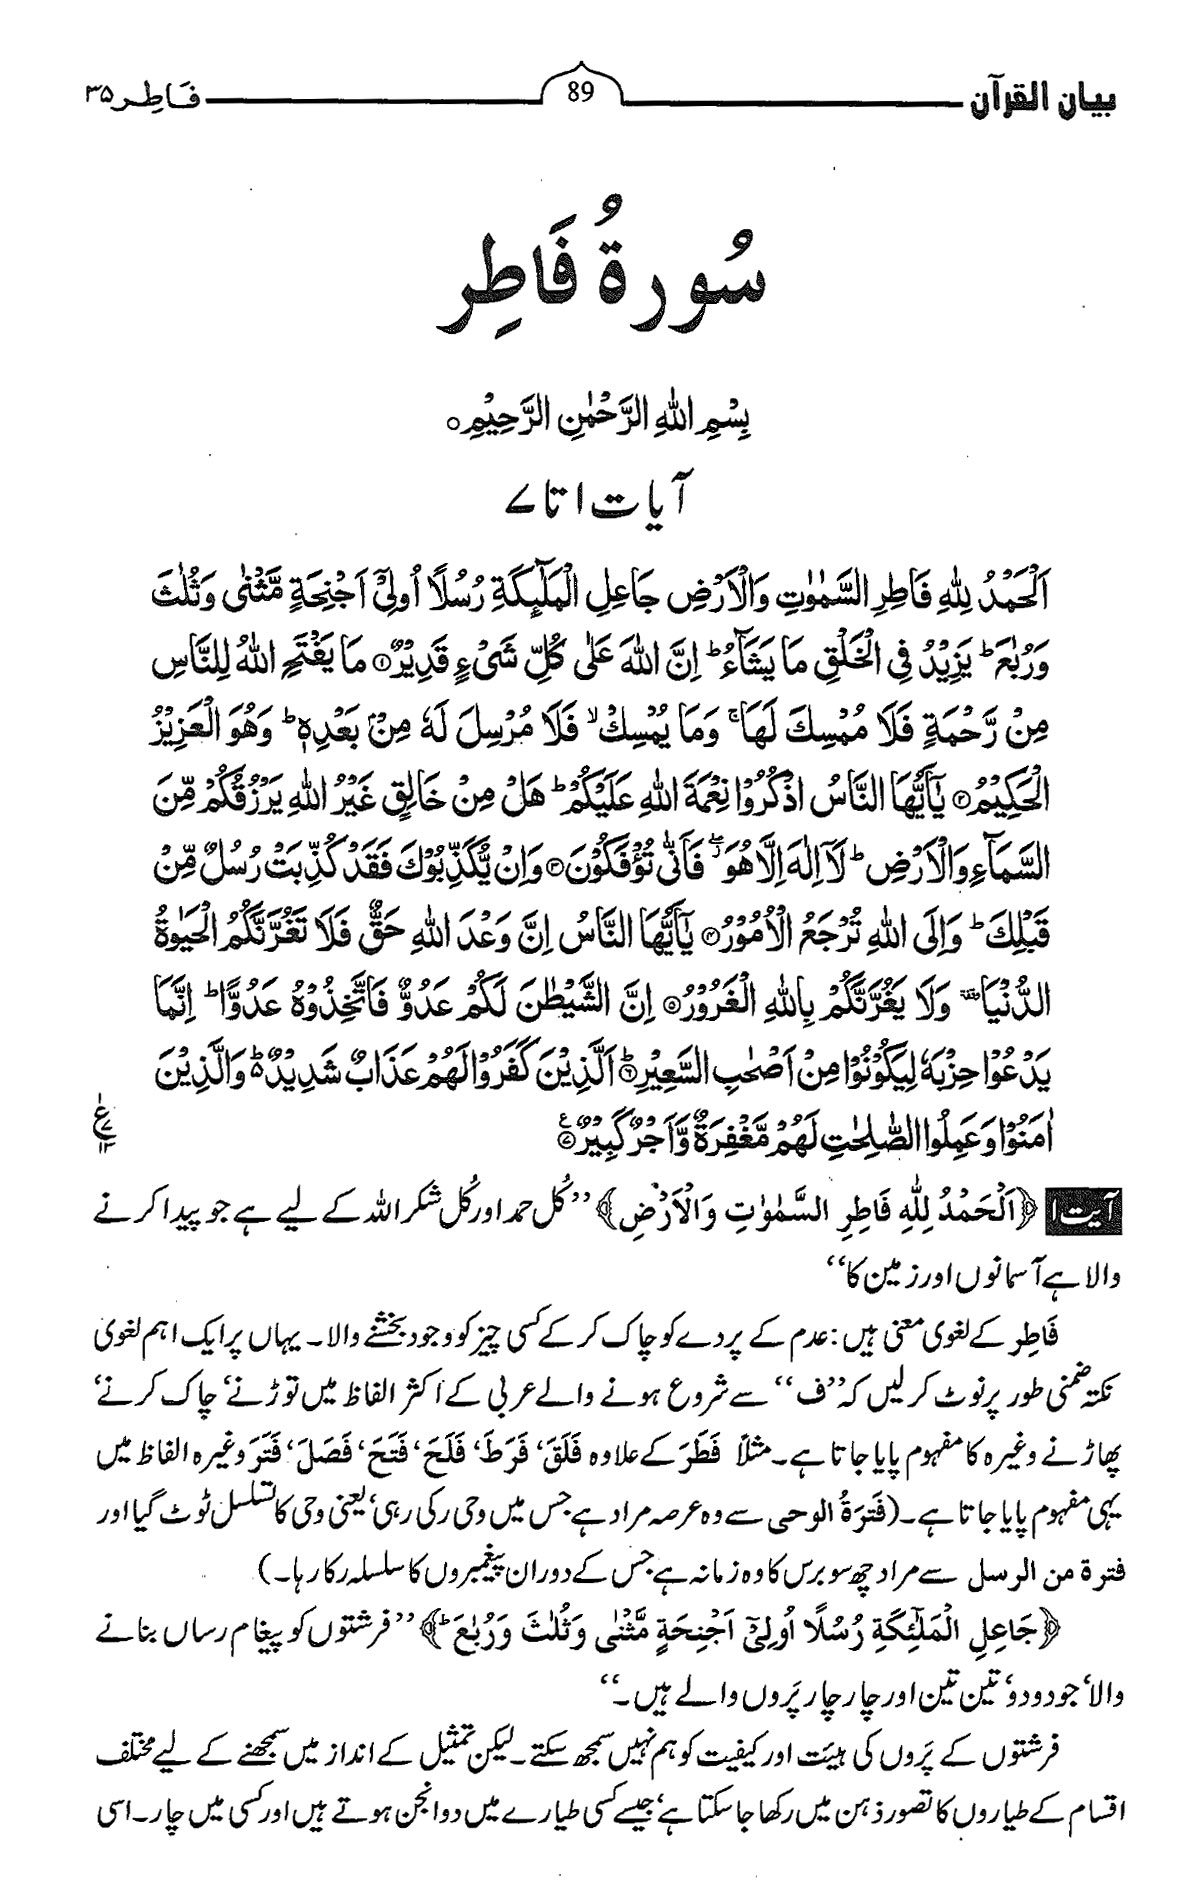 بیان القرآن 89 فَاطِر ۳۵
سُورةُ فَاطِر
بِسْمِ اللهِ الرَّحْمٰنِ الرَّحِيْمِ ○
آیات ۱ تا ۷
اَلْحَمْدُ لِلّٰهِ فَاطِرِ السَّمٰوٰتِ وَالْاَرْضِ جَاعِلِ الْمَلٰٓئِكَةِ رُسُلًا اُولِيْٓ اَجْنِحَةٍ مَّثْنٰى وَثُلٰثَ
وَرُبٰعَ ؕ يَزِيْدُ فِي الْخَلْقِ مَا يَشَآءُ ؕ اِنَّ اللهَ عَلٰى كُلِّ شَيْءٍ قَدِيْرٌ ۝۱ مَا يَفْتَحِ اللهُ لِلنَّاسِ
مِنْ رَّحْمَةٍ فَلَا مُمْسِكَ لَهَا ۚ وَمَا يُمْسِكْ ۙ فَلَا مُرْسِلَ لَهٗ مِنْۢ بَعْدِهٖ ؕ وَهُوَ الْعَزِيْزُ
الْحَكِيْمُ ۝۲ يٰٓاَيُّهَا النَّاسُ اذْكُرُوْا نِعْمَةَ اللهِ عَلَيْكُمْ ؕ هَلْ مِنْ خَالِقٍ غَيْرُ اللهِ يَرْزُقُكُمْ مِّنَ
السَّمَآءِ وَالْاَرْضِ ؕ لَآ اِلٰهَ اِلَّا هُوَ ۖ فَاَنّٰى تُؤْفَكُوْنَ ۝۳ وَاِنْ يُّكَذِّبُوْكَ فَقَدْ كُذِّبَتْ رُسُلٌ مِّنْ
قَبْلِكَ ؕ وَاِلَى اللهِ تُرْجَعُ الْاُمُوْرُ ۝۴ يٰٓاَيُّهَا النَّاسُ اِنَّ وَعْدَ اللهِ حَقٌّ فَلَا تَغُرَّنَّكُمُ الْحَيٰوةُ
الدُّنْيَا ۥ وَلَا يَغُرَّنَّكُمْ بِاللهِ الْغَرُوْرُ ۝۵ اِنَّ الشَّيْطٰنَ لَكُمْ عَدُوٌّ فَاتَّخِذُوْهُ عَدُوًّا ؕ اِنَّمَا
يَدْعُوْا حِزْبَهٗ لِيَكُوْنُوْا مِنْ اَصْحٰبِ السَّعِيْرِ ۝۶ؕ اَلَّذِيْنَ كَفَرُوْا لَهُمْ عَذَابٌ شَدِيْدٌ ؕ۬ وَالَّذِيْنَ
اٰمَنُوْا وَعَمِلُوا الصّٰلِحٰتِ لَهُمْ مَّغْفِرَةٌ وَّاَجْرٌ كَبِيْرٌ ۝۷ۧ
آیت ۱ ﴿اَلْحَمْدُ لِلّٰهِ فَاطِرِ السَّمٰوٰتِ وَالْاَرْضِ﴾ ’’کُل حمد اور کُل شکر اللہ کے لیے ہے جو پیدا کرنے
والا ہے آسمانوں اور زمین کا‘‘
فَاطِر کے لغوی معنی ہیں: عدم کے پردے کو چاک کر کے کسی چیز کو وجود بخشنے والا۔ یہاں پر ایک اہم لغوی
نکتہ ضمنی طور پر نوٹ کر لیں کہ ’’ف‘‘ سے شروع ہونے والے عربی کے اکثر الفاظ میں توڑنے‘ چاک کرنے‘
پھاڑنے وغیرہ کا مفہوم پایا جاتا ہے۔ مثلاً فَطَرَ کے علاوہ فَلَقَ‘ فَرَطَ‘ فَلَحَ‘ فَتَحَ‘ فَصَلَ‘ فَتَرَ وغیرہ الفاظ میں
یہی مفہوم پایا جاتا ہے۔ (فَتَرَةُ الوحی سے وہ عرصہ مراد ہے جس میں وحی رکی رہی‘ یعنی وحی کا تسلسل ٹوٹ گیا اور
فترة من الرسل سے مراد چھ سو برس کا وہ زمانہ ہے جس کے دوران پیغمبروں کا سلسلہ رکا رہا۔)
﴿جَاعِلِ الْمَلٰٓئِكَةِ رُسُلًا اُولِيْٓ اَجْنِحَةٍ مَّثْنٰى وَثُلٰثَ وَرُبٰعَ ؕ﴾ ’’فرشتوں کو پیغام رساں بنانے
والا‘ جو دو دو‘ تین تین اور چار چار پَروں والے ہیں۔‘‘
فرشتوں کے پَروں کی ہیئت اور کیفیت کو ہم نہیں سمجھ سکتے۔ لیکن تمثیل کے انداز میں سمجھنے کے لیے مختلف
اقسام کے طیاروں کا تصور ذہن میں رکھا جا سکتا ہے‘ جیسے کسی طیارے میں دو انجن ہوتے ہیں اور کسی میں چار۔ اسی